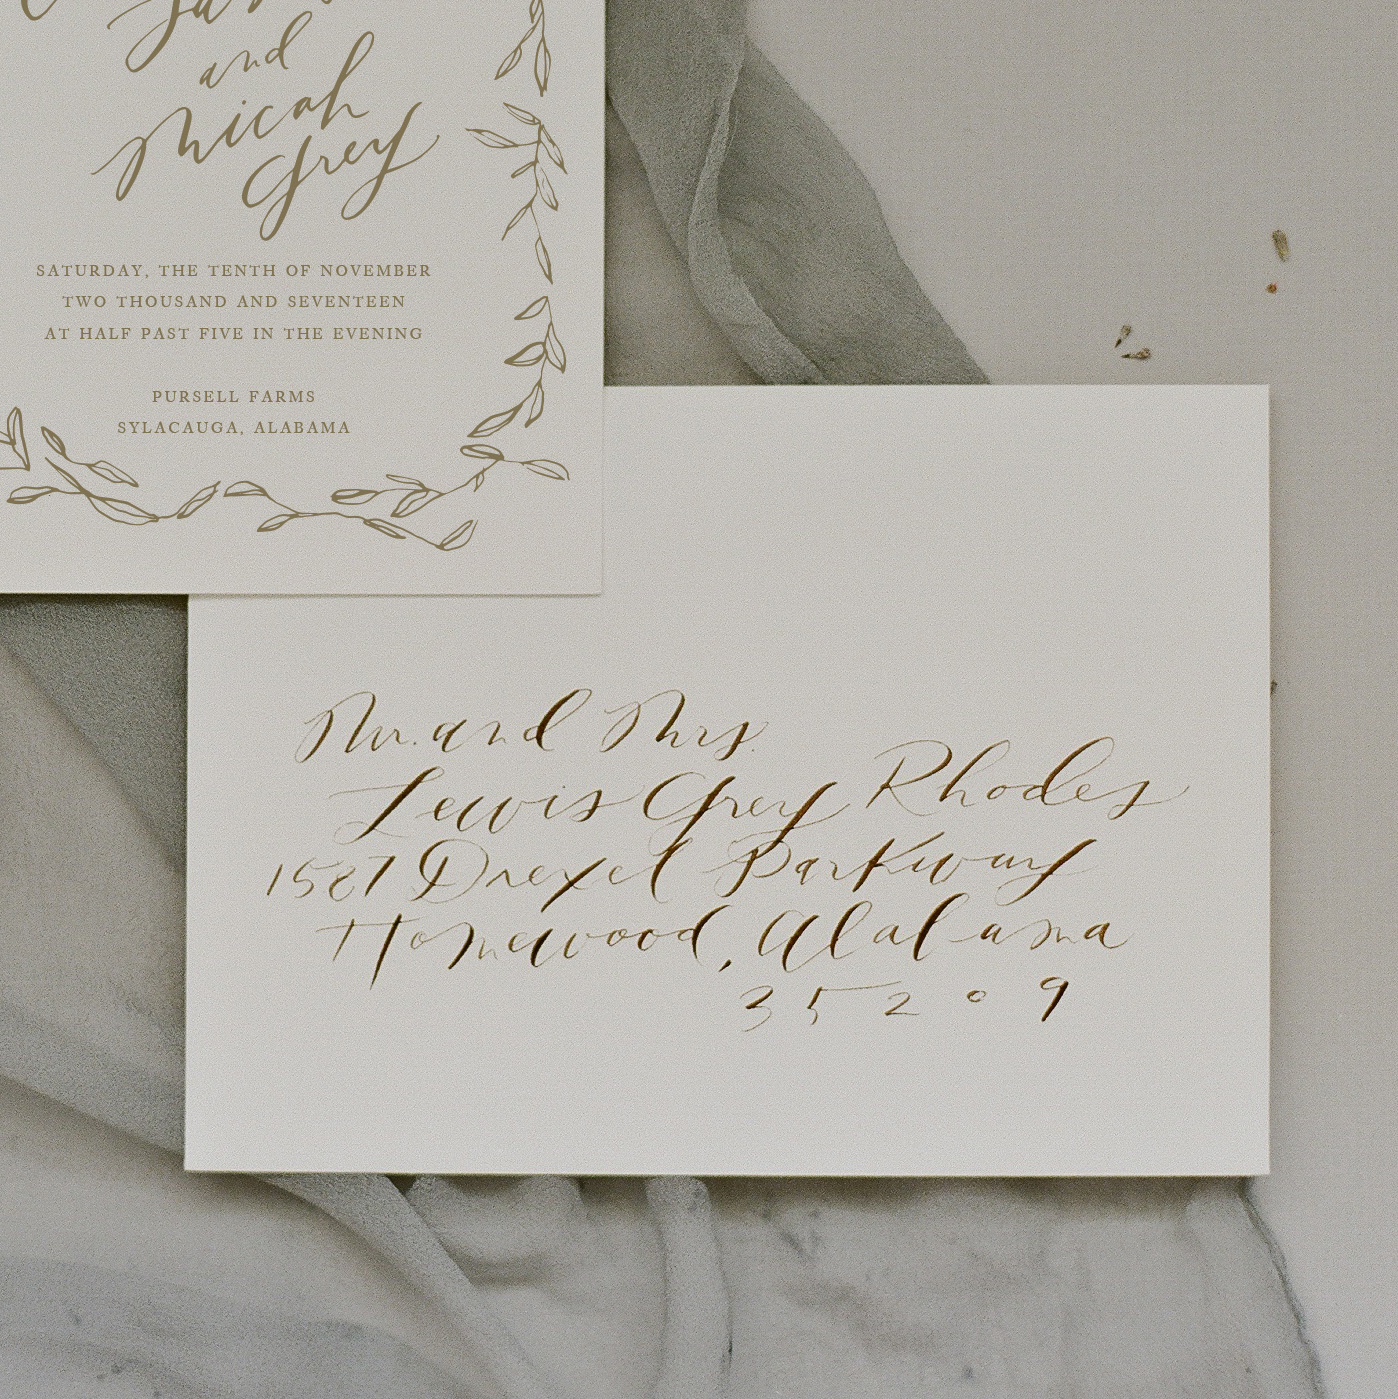 and
Micah
Grey
SATURDAY, THE TENTH OF NOVEMBER
TWO THOUSAND AND SEVENTEEN
AT HALF PAST FIVE IN THE EVENING
PURSELL FARMS
SYLACAUGA, ALABAMA
Mr. and Mrs.
Lewis Grey Rhodes
1587 Drexel Parkway
Homewood, Alabama
35209